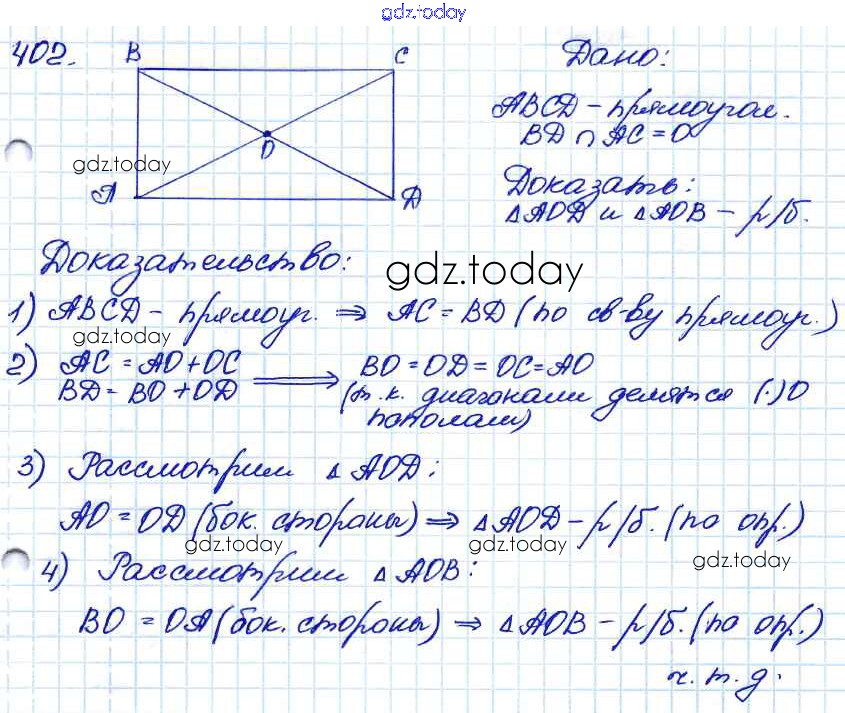 gdz.today
402.
B
C
Дано:
ABCD - прямоугол.
BD ∩ AC = O
gdz.today
O
A
D
Доказать:
△AOD и △AOB - р/б.
Доказательство:
gdz.today
1) ABCD - прямоуг. ⇒ AC = BD (по св-ву прямоуг.)
gdz.today
2) AC = AO + OC ⇒ BO = OD = OC = AO
BD = BO + OD (т.к. диагонали делятся (·) O
пополам)
3) Рассмотрим △AOD:
AO = OD (бок. стороны) ⇒ △AOD - р/б. (по опр.)
gdz.today
gdz.today
gdz.today
4) Рассмотрим △AOB:
BO = OA (бок. стороны) ⇒ △AOB - р/б. (по опр.)
ч.т.д.